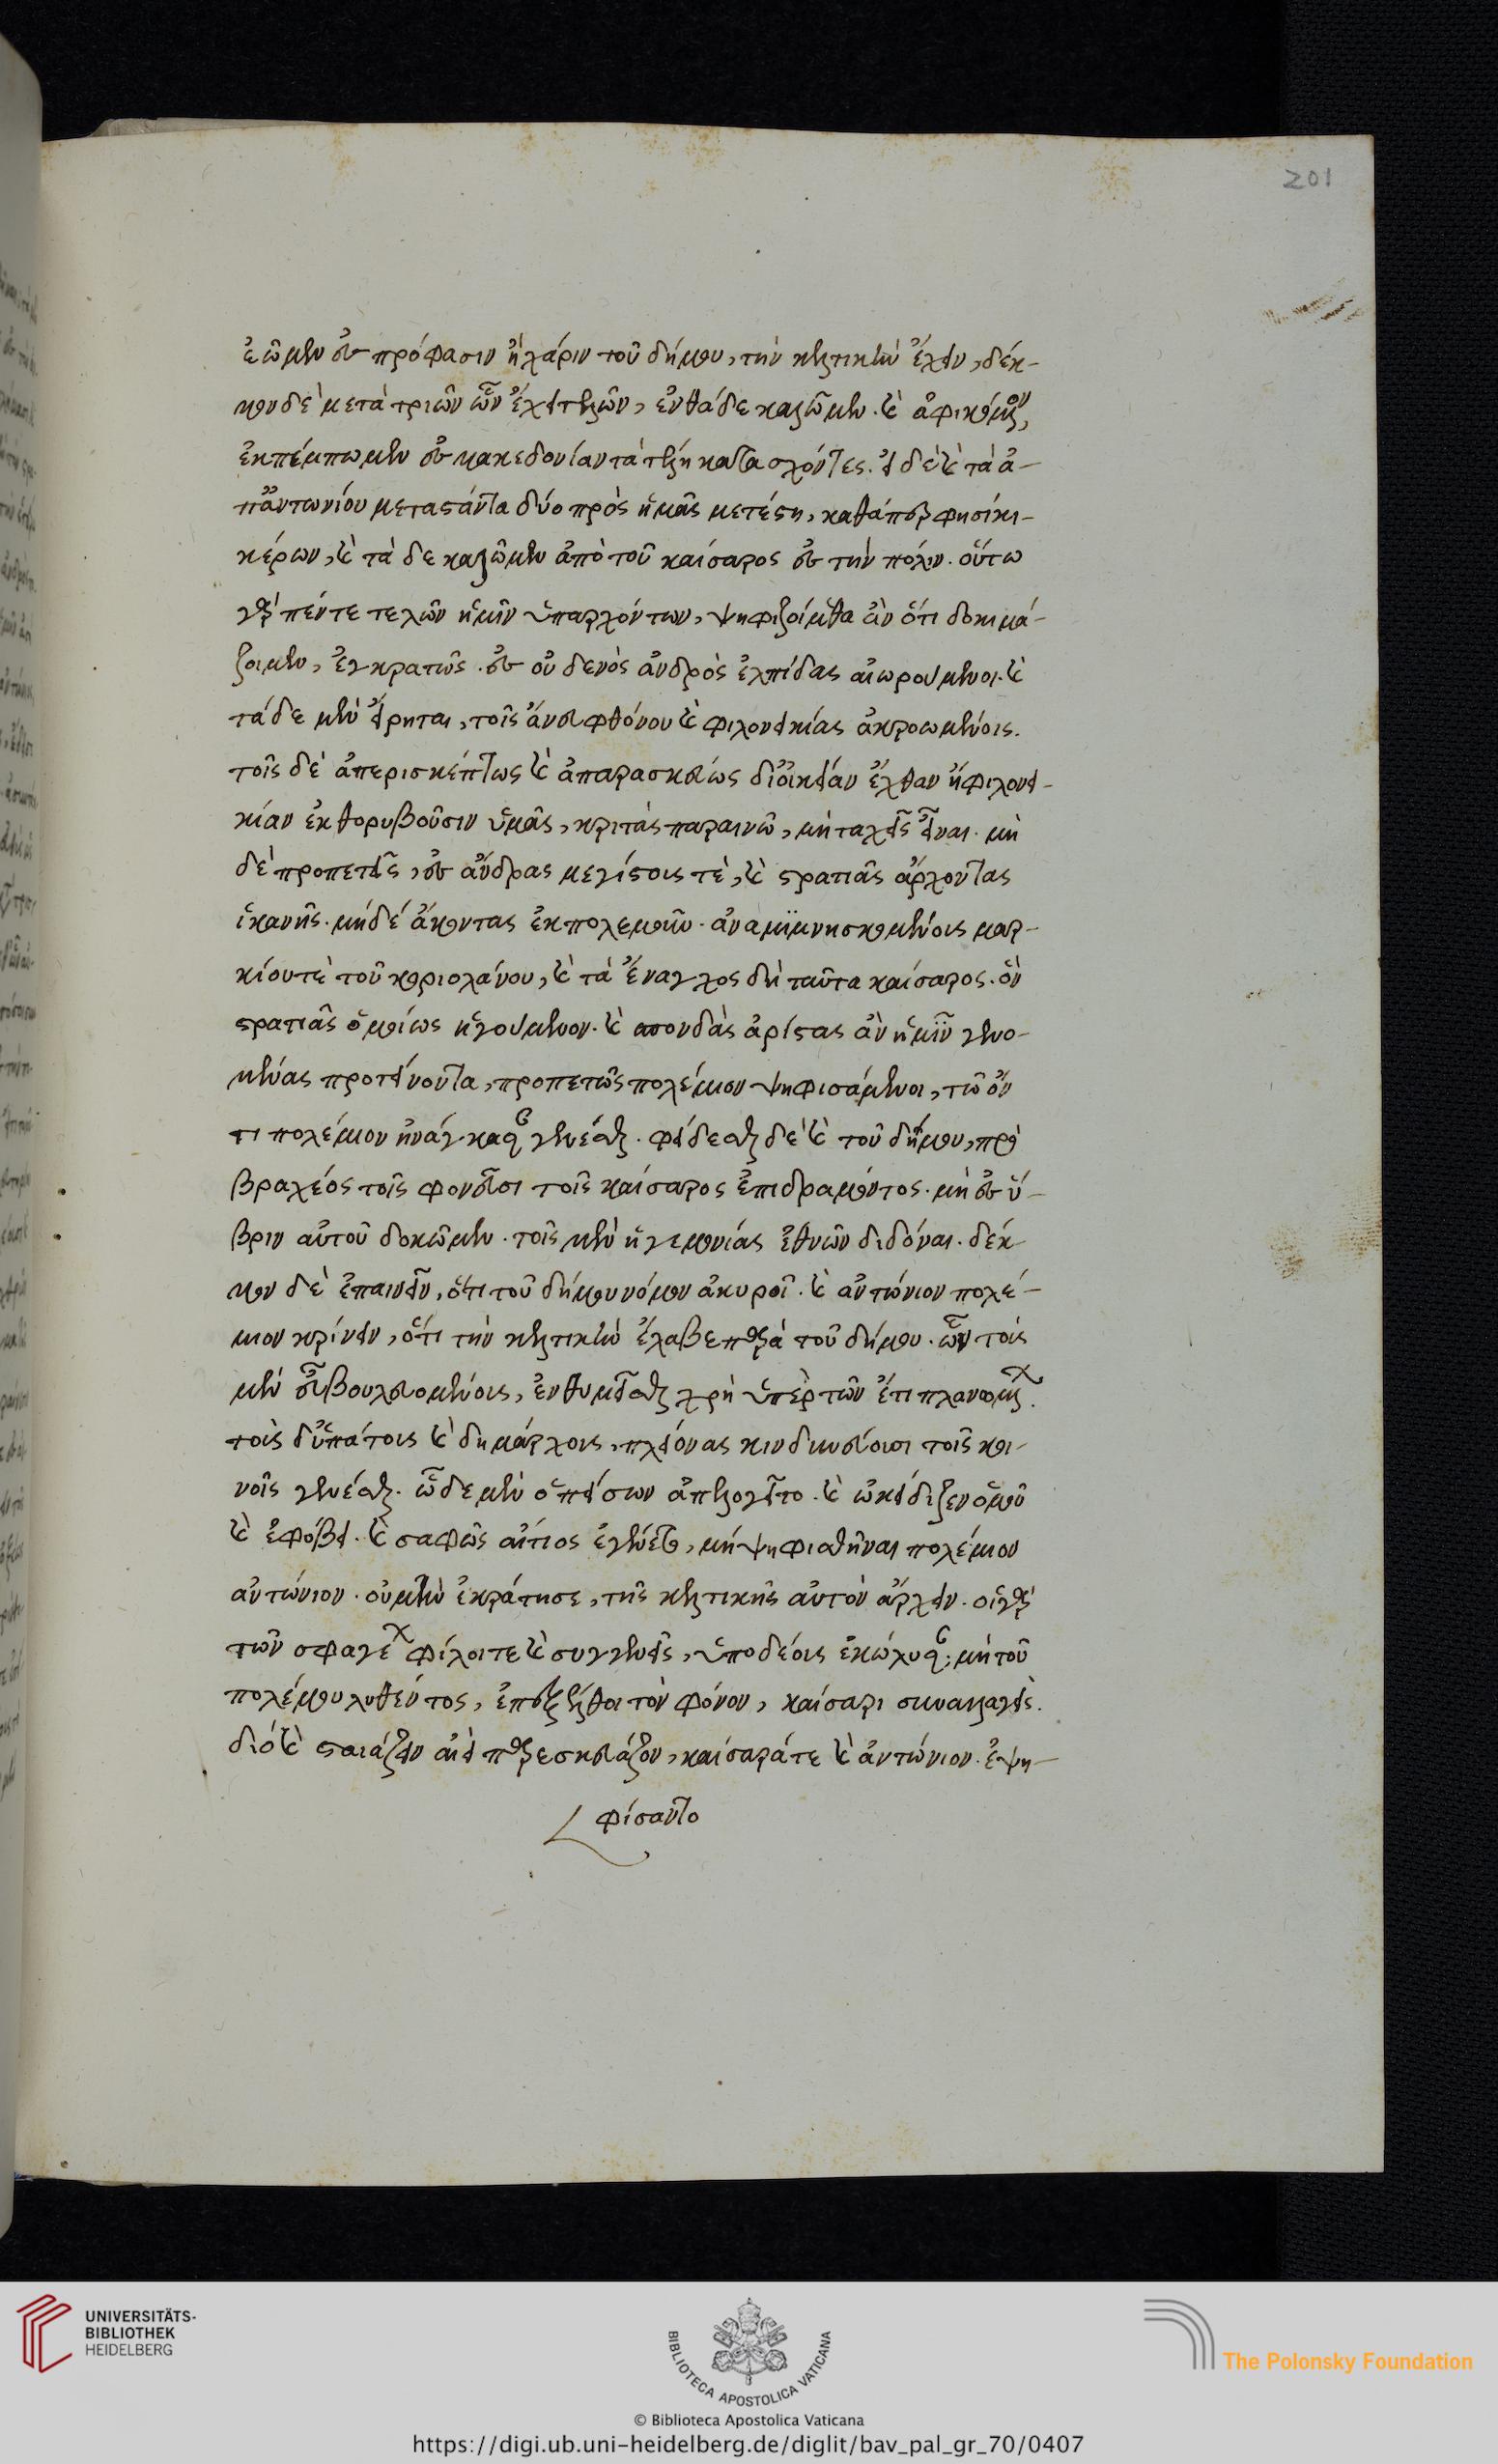 201
ἐῶμεν ἐς πρόφασιν ἢ χάριν τοῦ δήμου, τὴν κελτικὴν ἔχειν, δέκ-
μον δὲ μετὰ τριῶν ὧν ἔχει τελῶν, ἐνθάδε καλῶμεν. καὶ ἀφικόμενον,
ἐκπέμπωμεν ἐς μακεδονίαν τὰ τέλη κατασχόντες. εἰ δὲ καὶ τὰ ἀ-
π' ἀντωνίου μεταστάντα δύο πρὸς ἡμᾶς μετέστη, καθάπερ φησὶ κι-
κέρων, καὶ τάδε καλῶμεν ἀπὸ τοῦ καίσαρος ἐς τὴν πόλιν. οὕτω
γὰρ πέντε τελῶν ἡμῖν ὑπαρχόντων, ψηφιζοίμεθα ἂν ὅτι δοκιμά-
ζοιμεν, ἐγκρατῶς. ἐς οὐδενὸς ἀνδρὸς ἐλπίδας αἰωρούμενοι. καὶ
τάδε μὲν εἴρηται, τοῖς ἄνευ φθόνου καὶ φιλονεικίας ἀκροωμένοις.
τοῖς δὲ ἀπερισκέπτως καὶ ἀπαρασκεύως δι' οἰκείαν ἔχθραν ἢ φιλονει-
κίαν ἐκθορυβοῦσιν ὑμᾶς, κριτὰς παραινῶ, μὴ ταχεῖς εἶναι. μὴ
δὲ προπετεῖς, ἐς ἄνδρας μεγίστοις τὲ, καὶ στρατιᾶς ἄρχοντας
ἱκανῆς. μήδέ ἄκοντας ἐκπολεμοῦν. ἀναμιμνησκομένοις μαρ-
κίου τὲ τοῦ κοριολάνου, καὶ τὰ ἔναγχος δὴ ταῦτα καίσαρος. ὃν
στρατιᾶς ὁμοίως ἡγούμενον. καὶ σπονδὰς ἀρίστας ἂν ἡμῖν γενο-
μένας προτείνοντα, προπετῶς πολέμιον ψηφισάμενοι, τῶ ὄν
τι πολέμιον ἠναγκάσαμεν γενέσθαι. φείδεσθαι δὲ καὶ τοῦ δήμου, πρὸ
βραχέος τοῖς φονεῦσι τοῖς καίσαρος ἐπιδραμόντος. μὴ ἐς ὕ-
βριν αὐτοῦ δοκῶμεν. τοῖς μὲν ἡγεμονίας ἐθνῶν διδόναι. δέκ-
μον δὲ ἐπαινεῖν, ὅτι τοῦ δήμου νόμον ἀκυροῖ. καὶ ἀντώνιον πολέ-
μιον κρίνειν, ὅτι τὴν κελτικὴν ἔλαβε παρὰ τοῦ δήμου. ὧν τοὺς
μὲν εὖ βουλευομένοις, ἐνθυμεῖσθαι χρὴ ὑπὲρ τῶν ἔτι πλανωμένων.
τοὺς δ' ὑπάτοις καὶ δημάρχοις, πλείονας κινδυνεύουσι τοῖς κοι-
νοῖς γενέσθαι. ὧδε μὲν ὁ πείσων ἀπελογεῖτο. καὶ ὠνείδιζεν ὁμοῦ
καὶ ἐφόβει. καὶ σαφῶς αἴτιος ἐγένετο, μὴ ψηφισθῆναι πολέμιον
ἀντώνιον. οὐ μὴν ἐκράτησε, τῆς κελτικῆς αὐτὸν ἄρχειν. οἱ γὰρ
τῶν σφαγέων φίλοι τε καὶ συγγενεῖς, ὑπὸ δέοις ἐκώλυσαν, μὴ τοῦ
πολέμου λυθέντος, ἐπεξέλθοι τὸν φόνον, καίσαρι συναλλαγείς.
διὸ καὶ στασιάζειν αἰεὶ παρεσκεύαζον, καίσαρά τε καὶ ἀντώνιον. ἐψη-
φίσαντο
UNIVERSITÄTS-
BIBLIOTHEK
HEIDELBERG
BIBLIOTECA APOSTOLICA VATICANA
The Polonsky Foundation
© Biblioteca Apostolica Vaticana
https://digi.ub.uni-heidelberg.de/diglit/bav_pal_gr_70/0407